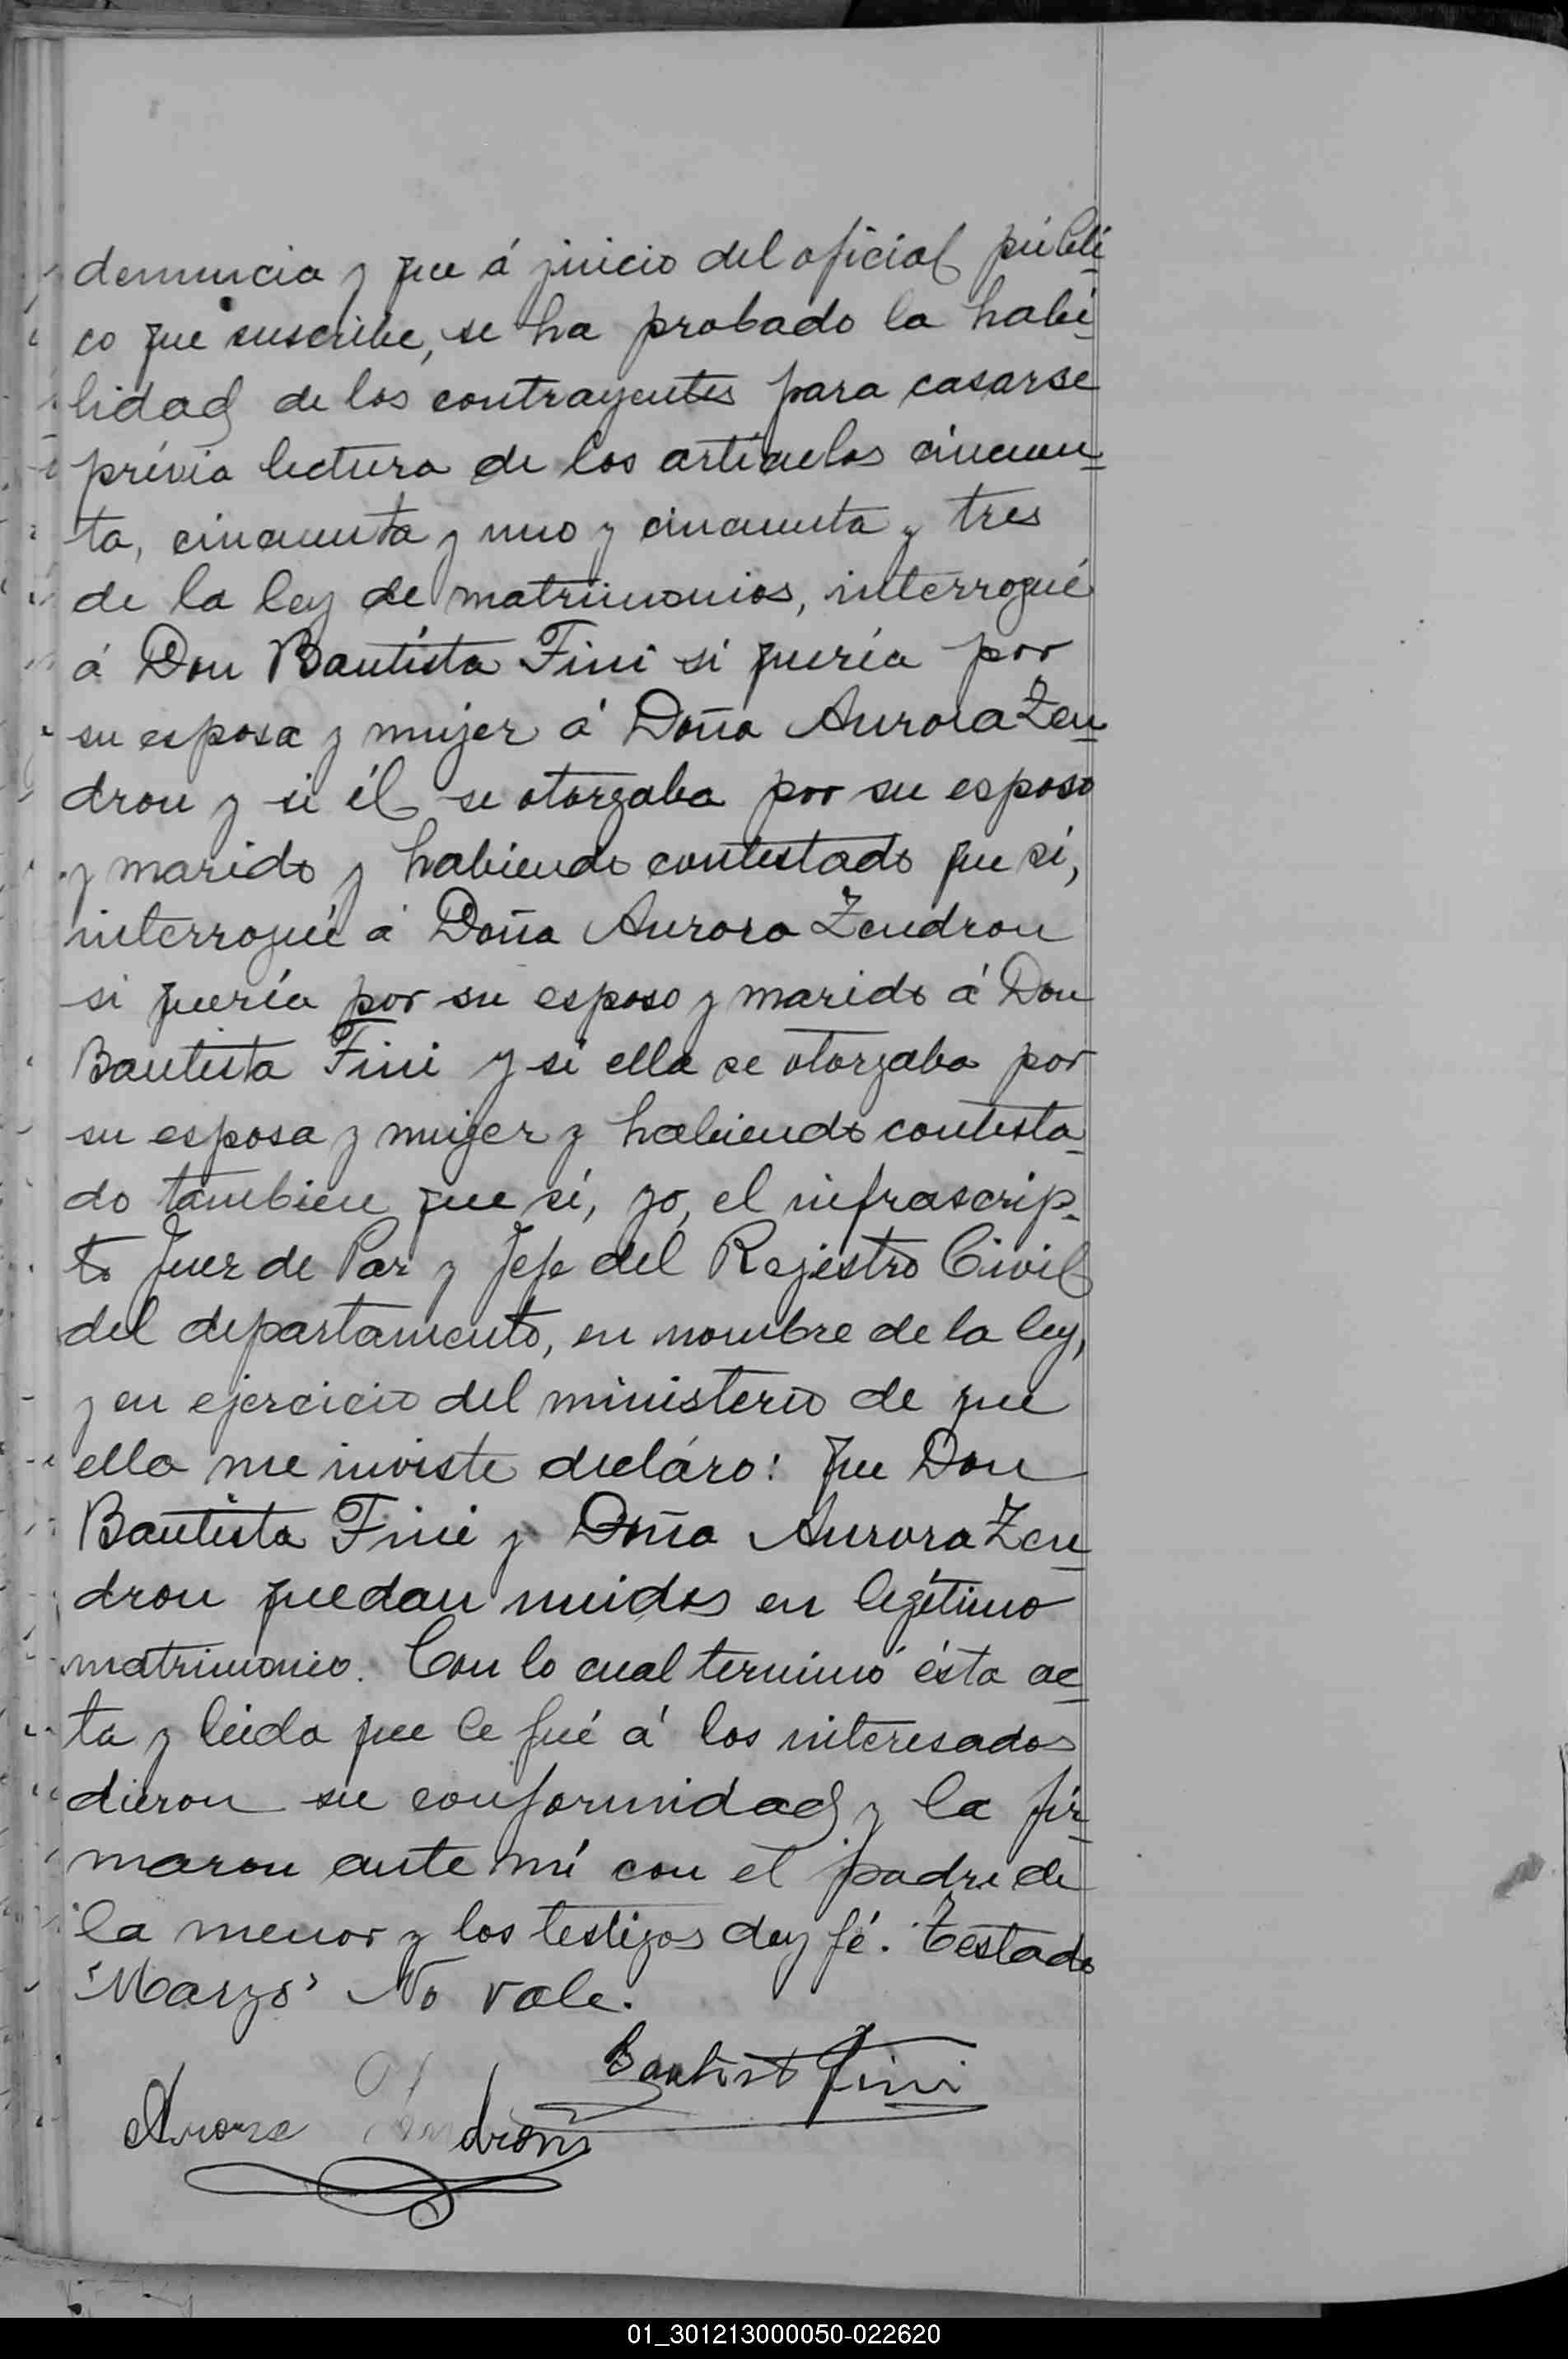 denuncia y que á juicio del oficial públi-
co que suscribe, se ha probado la habi-
lidad de los contrayentes para casarse
prévia lectura de los artículos cincuen-
ta, cincuenta y uno y cincuenta y tres
de la ley de matrimonios, interrogué
á Don Bautista Fini si quería por
su esposa y mujer á Doña Aurora Zen-
dron y si él se otorgaba por su esposo
y marido y habiendo contestado que sí,
interrogué á Doña Aurora Zendron
si quería por su esposo y marido á Don
Bautista Fini y si ella se otorgaba por
su esposa y mujer y habiendo contesta-
do tambien que sí, yo, el infrascrip-
to Juez de Paz y Jefe del Rejistro Civil
del departamento, en nombre de la ley,
y en ejercicio del ministerio de que
ella me inviste decláro: que Don
Bautista Fini y Doña Aurora Zen-
dron quedan unidos en legítimo
matrimonio. Con lo cual terminó ésta ac-
ta y leida que le fué á los interesados
dieron su conformidad y la fir-
maron ante mí con el padre de
la menor y los testigos doy fé. Testado
"Marzo" No vale.
Bautist Fini
Aurora Zendron
01_301213000050-022620